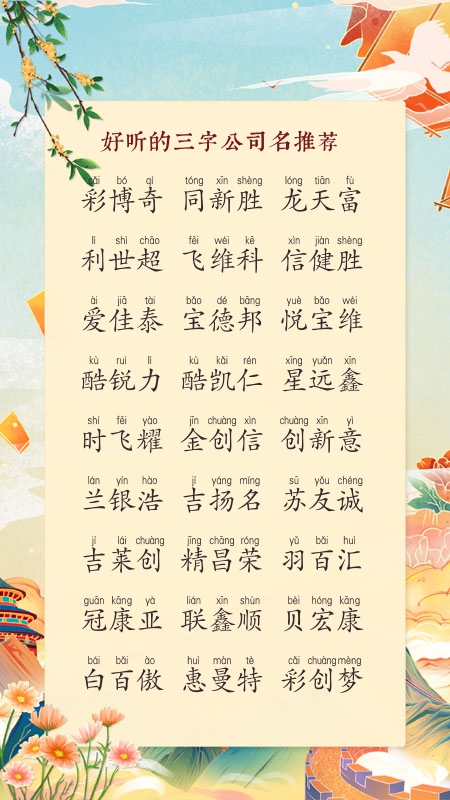 好听的三字公司名推荐
cǎi bó qí tóng xīn shèng lóng tiān fù
彩博奇 同新胜 龙天富
lì shì chāo fēi wéi kē xìn jiàn shèng
利世超 飞维科 信健胜
ài jiā tài bǎo dé bāng yuè bǎo wéi
爱佳泰 宝德邦 悦宝维
kù ruì lì kù kǎi rén xīng yuǎn xīn
酷锐力 酷凯仁 星远鑫
shí fēi yào jīn chuàng xìn chuàng xīn yì
时飞耀 金创信 创新意
lán yín hào jí yáng míng sū yǒu chéng
兰银浩 吉扬名 苏友诚
jí lái chuàng jīng chāng róng yǔ bǎi huì
吉莱创 精昌荣 羽百汇
guān kāng yà lián xīn shùn bèi hóng kāng
冠康亚 联鑫顺 贝宏康
bái bǎi ào huì màn tè cǎi chuàng mèng
白百傲 惠曼特 彩创梦